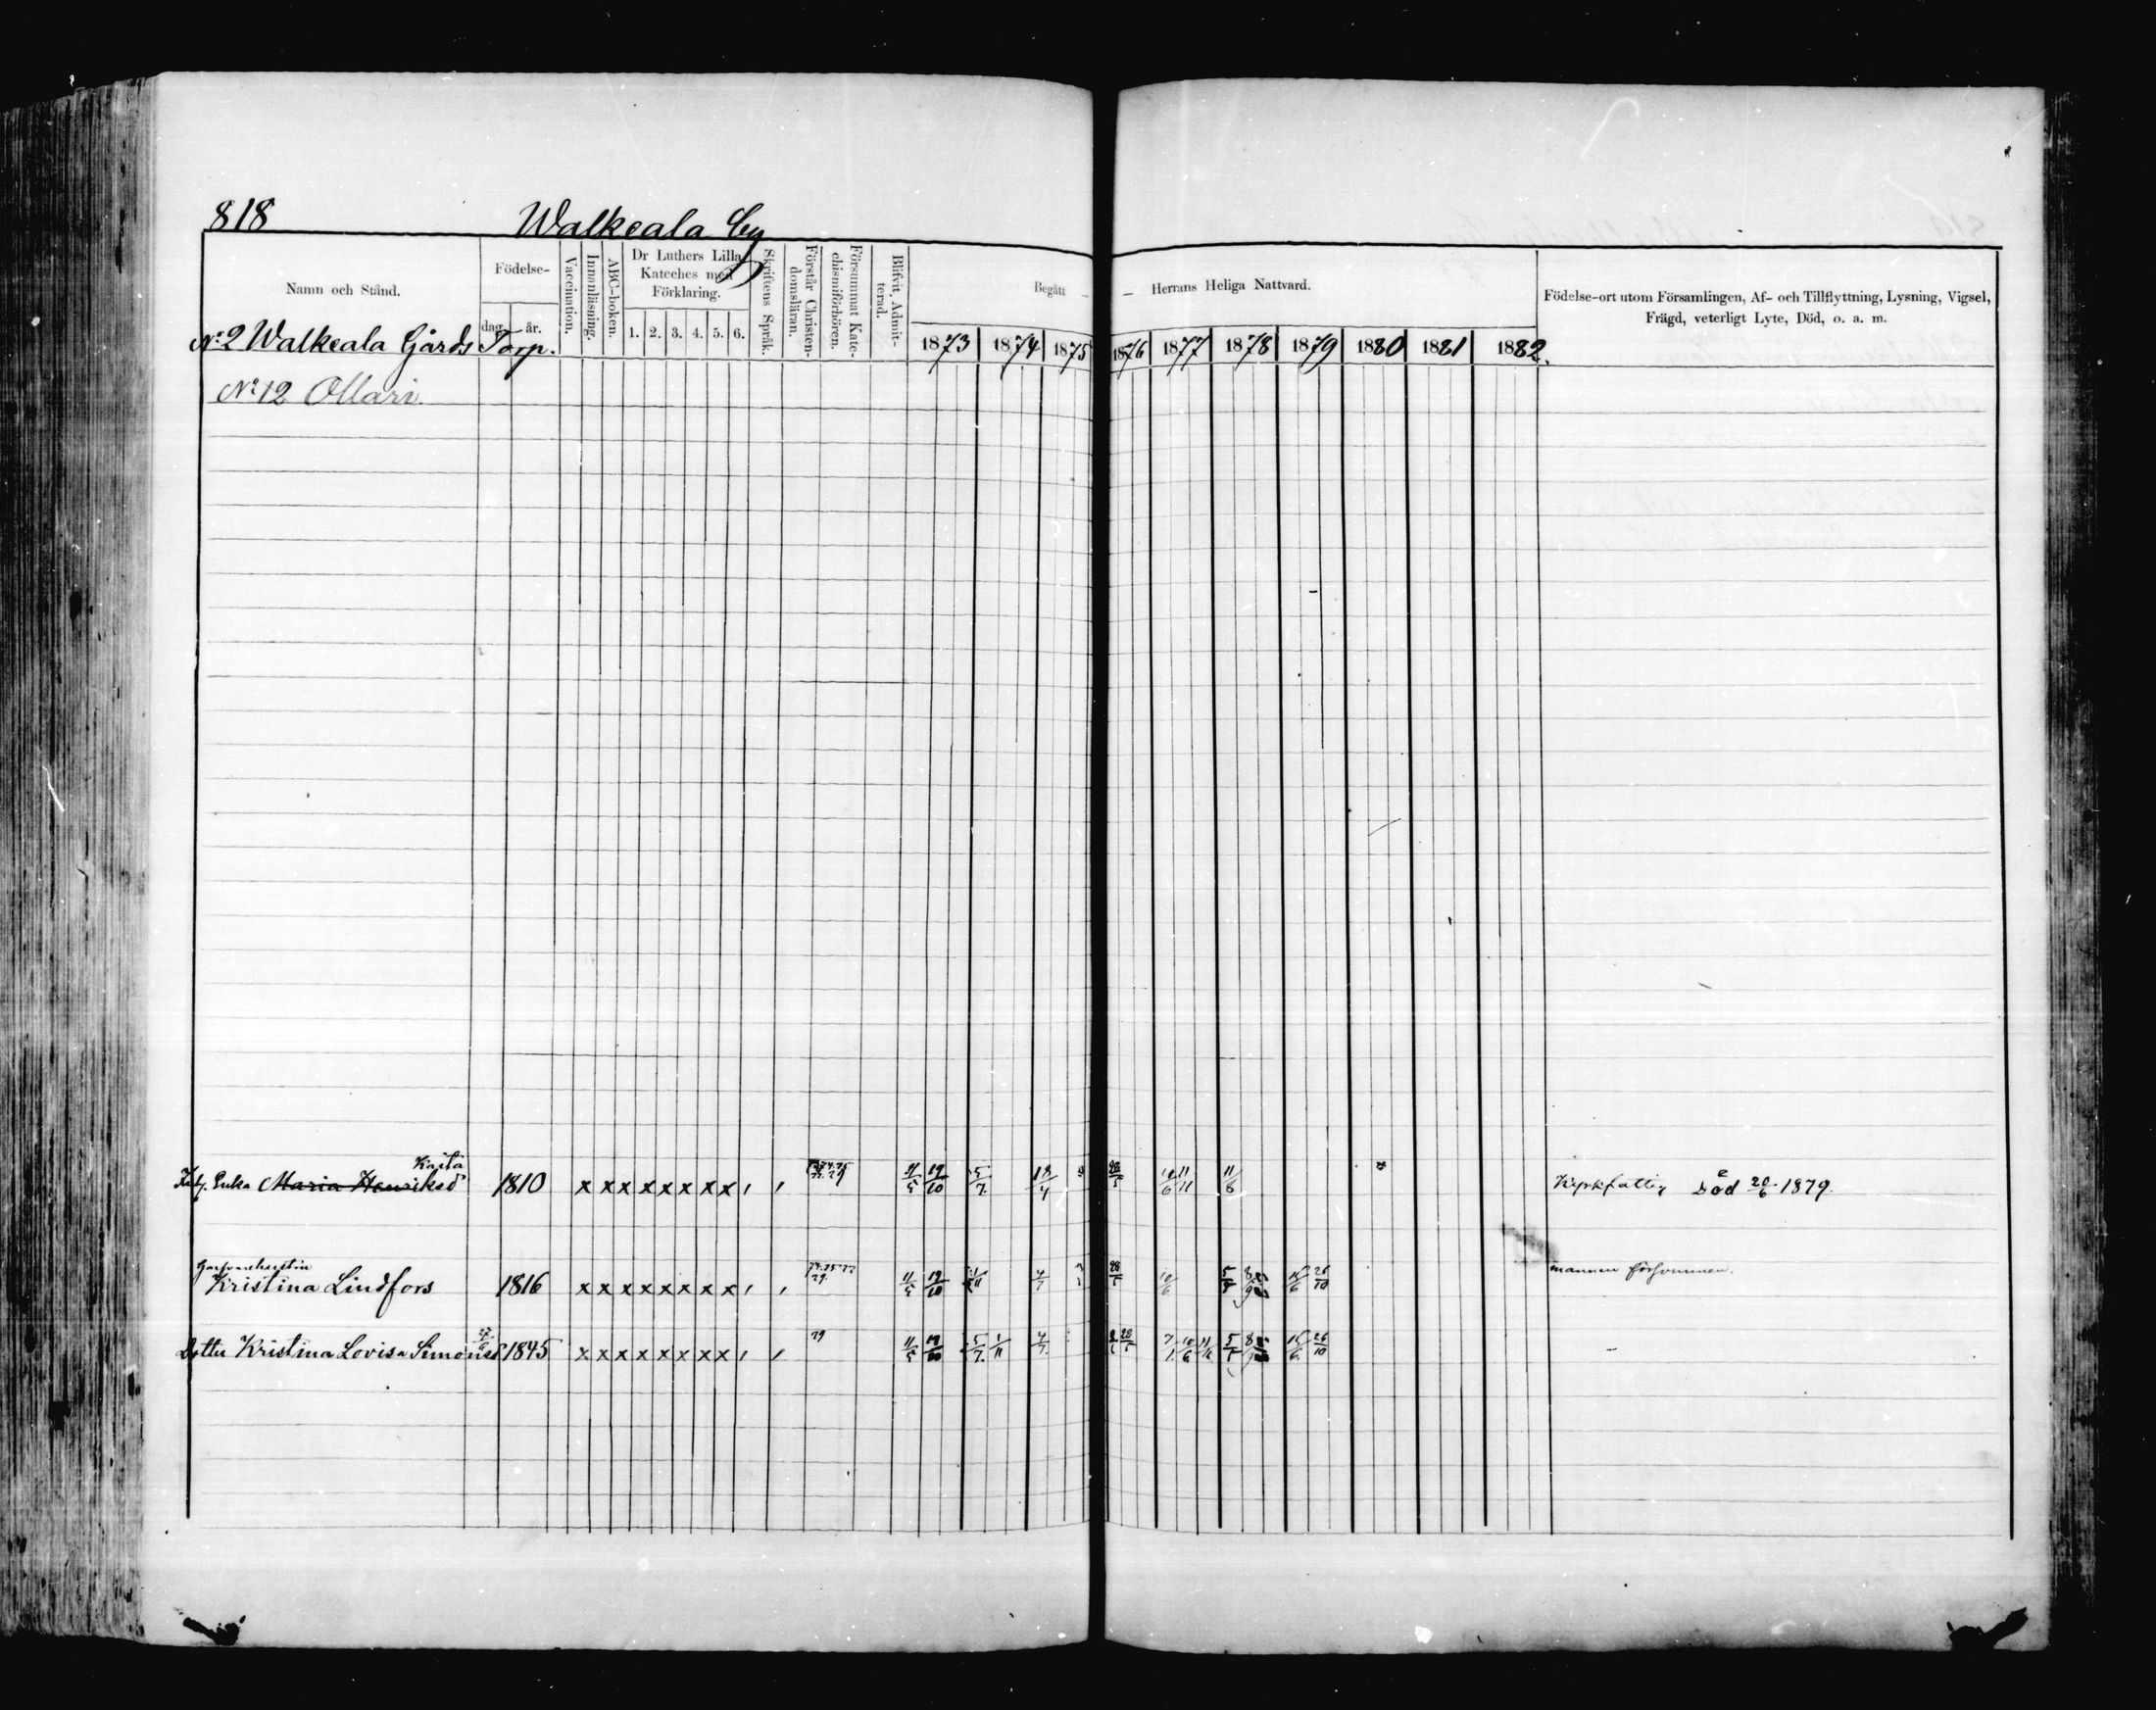 818 Walkeala by
Namn och Stånd.
Födelse-
dag. år.
Vaccination.
Innanläsning.
ABC-boken.
Dr Luthers Lilla
Kateches med
Förklaring.
1. 2. 3. 4. 5. 6.
Skriftens Språk.
Förstår Christen-
domsläran.
Försummat Kate-
chismiförhören.
Blifvit Admit-
terad.
Begått — — Herrans Heliga Nattvard.
1873 1874 1875 1876 1877 1878 1879 1880 1881 1882.
Födelse-ort utom Församlingen, Af- och Tillflyttning, Lysning, Vigsel,
Frägd, veterligt Lyte, Död, o. a. m.
No 2 Walkeala Gårds Torp.
No 12 Ollari.
Kaita
Enka Maria Henriksd 1810 x x x x x x x x 11/5 19/10 5/7 18/4 10/6 11/11 11/6 Kyrkfattig Död 20/6 1879.
Kristina Lindfors 1816 x x x x x x x x 11/5 19/10 4/7 10/6 15/6 26/10 mannen försvunnen.
Dotter Kristina Lovisa Simonsd 1845 x x x x x x x x 79 11/5 19/10 5/7 1/11 4/7 15/6 26/10 –